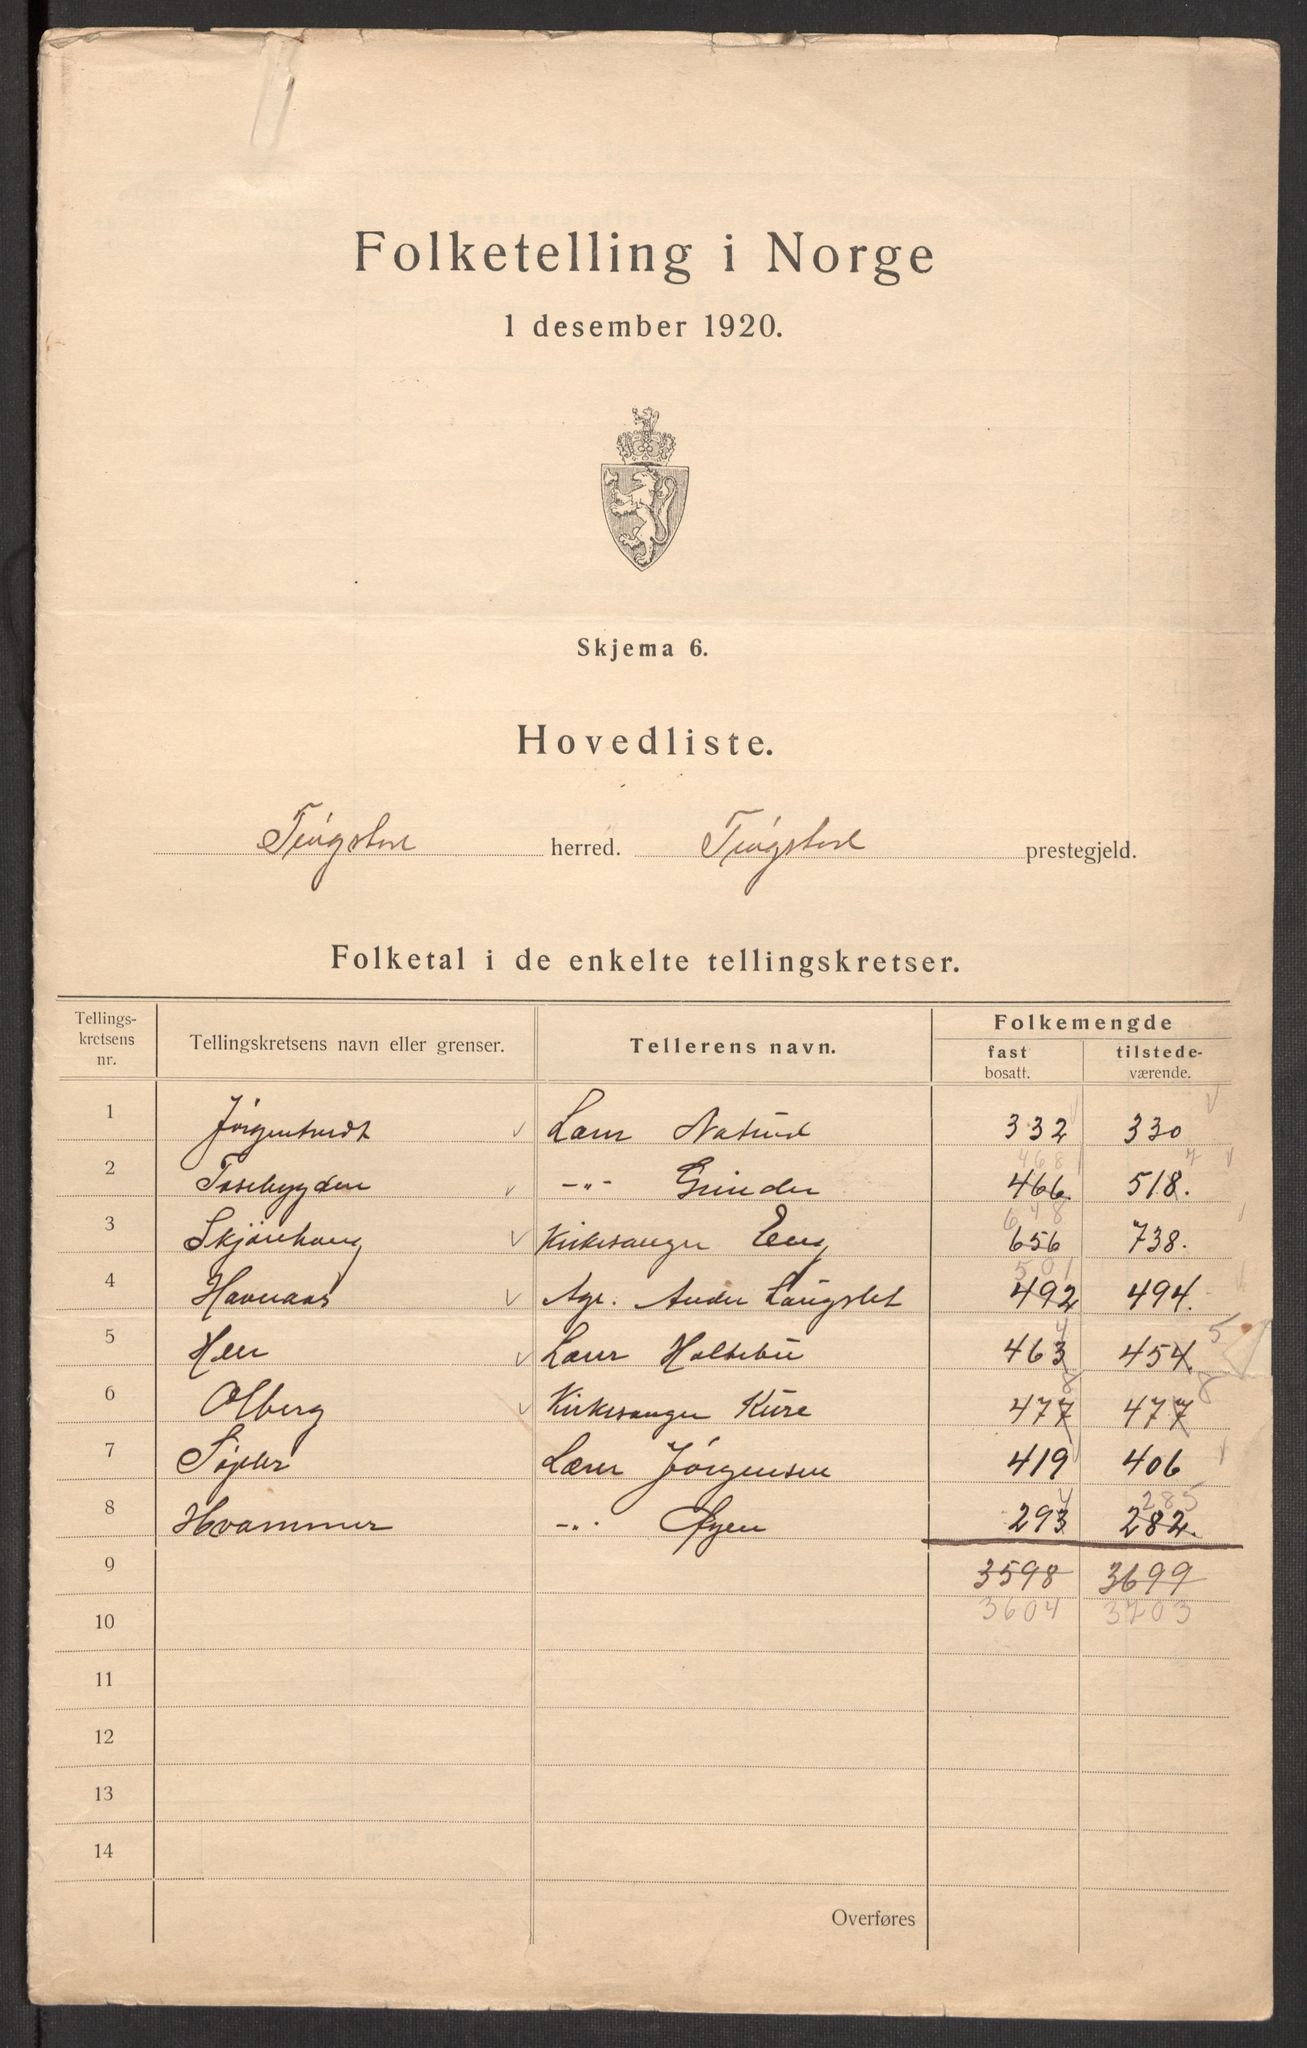 Folketelling i Norge
1 desember 1920.
Skjema 6.
Hovedliste.
Trøgstad herred. Trøgstad prestegjeld.
Folketal i de enkelte tellingskretser.
Tellings-kretsens nr. Tellingskretsens navn eller grenser. Tellerens navn. Folkemengde fast bosatt. tilstede-værende.
1 Jørgentvedt Lærer Natrud 332 330
2 Tosebygden -"- Grinder 466 468 518. 7
3 Skjønhaug Kirkesanger Eng 656 648 738.
4 Havnaas Agr. Anders Langslet 492 501 494.
5 Heer Lærer Holtebu 463 4 454 5
6 Olberg Kirkesanger Kure 477 8 477 8
7 Søpler Lærer Jørgensen 419 406
8 Hvammer -"- Øyen 293 4 282. 285
9 3598 3699
10 3604 3703
11
12
13
14
Overføres